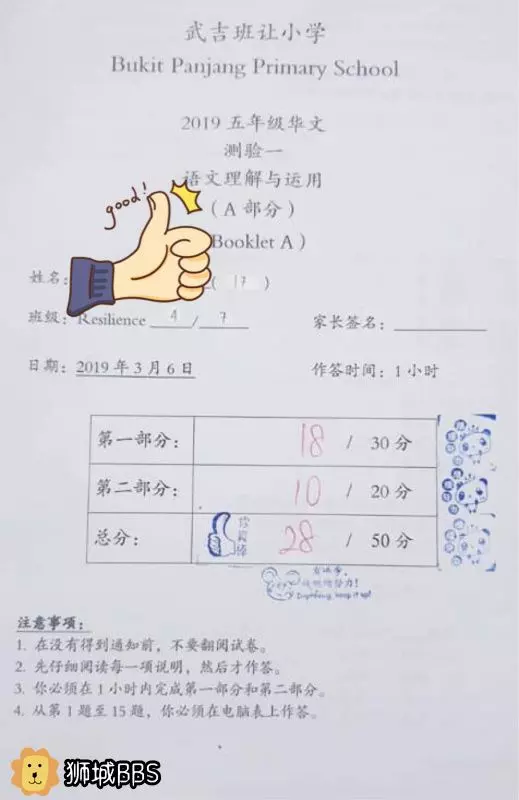 武吉班让小学
Bukit Panjang Primary School
2019 五年级华文
测验一
语文理解与运用
(A 部分)
good!
Booklet A)
姓名: ( 17 )
班级: Resilience 4 / 7
家长签名:
日期: 2019 年 3 月 6 日
作答时间: 1 小时
第一部分: 18 / 30 分
第二部分: 10 / 20 分
总分: 你真棒 28 / 50 分
有进步,
继续努力!
Improving, keep it up!
注意事项:
1. 在没有得到通知前,不要翻阅试卷。
2. 先仔细阅读每一项说明,然后才作答。
3. 你必须在 1 小时内完成第一部分和第二部分。
4. 从第 1 题至 15 题,你必须在电脑表上作答。
狮城BBS